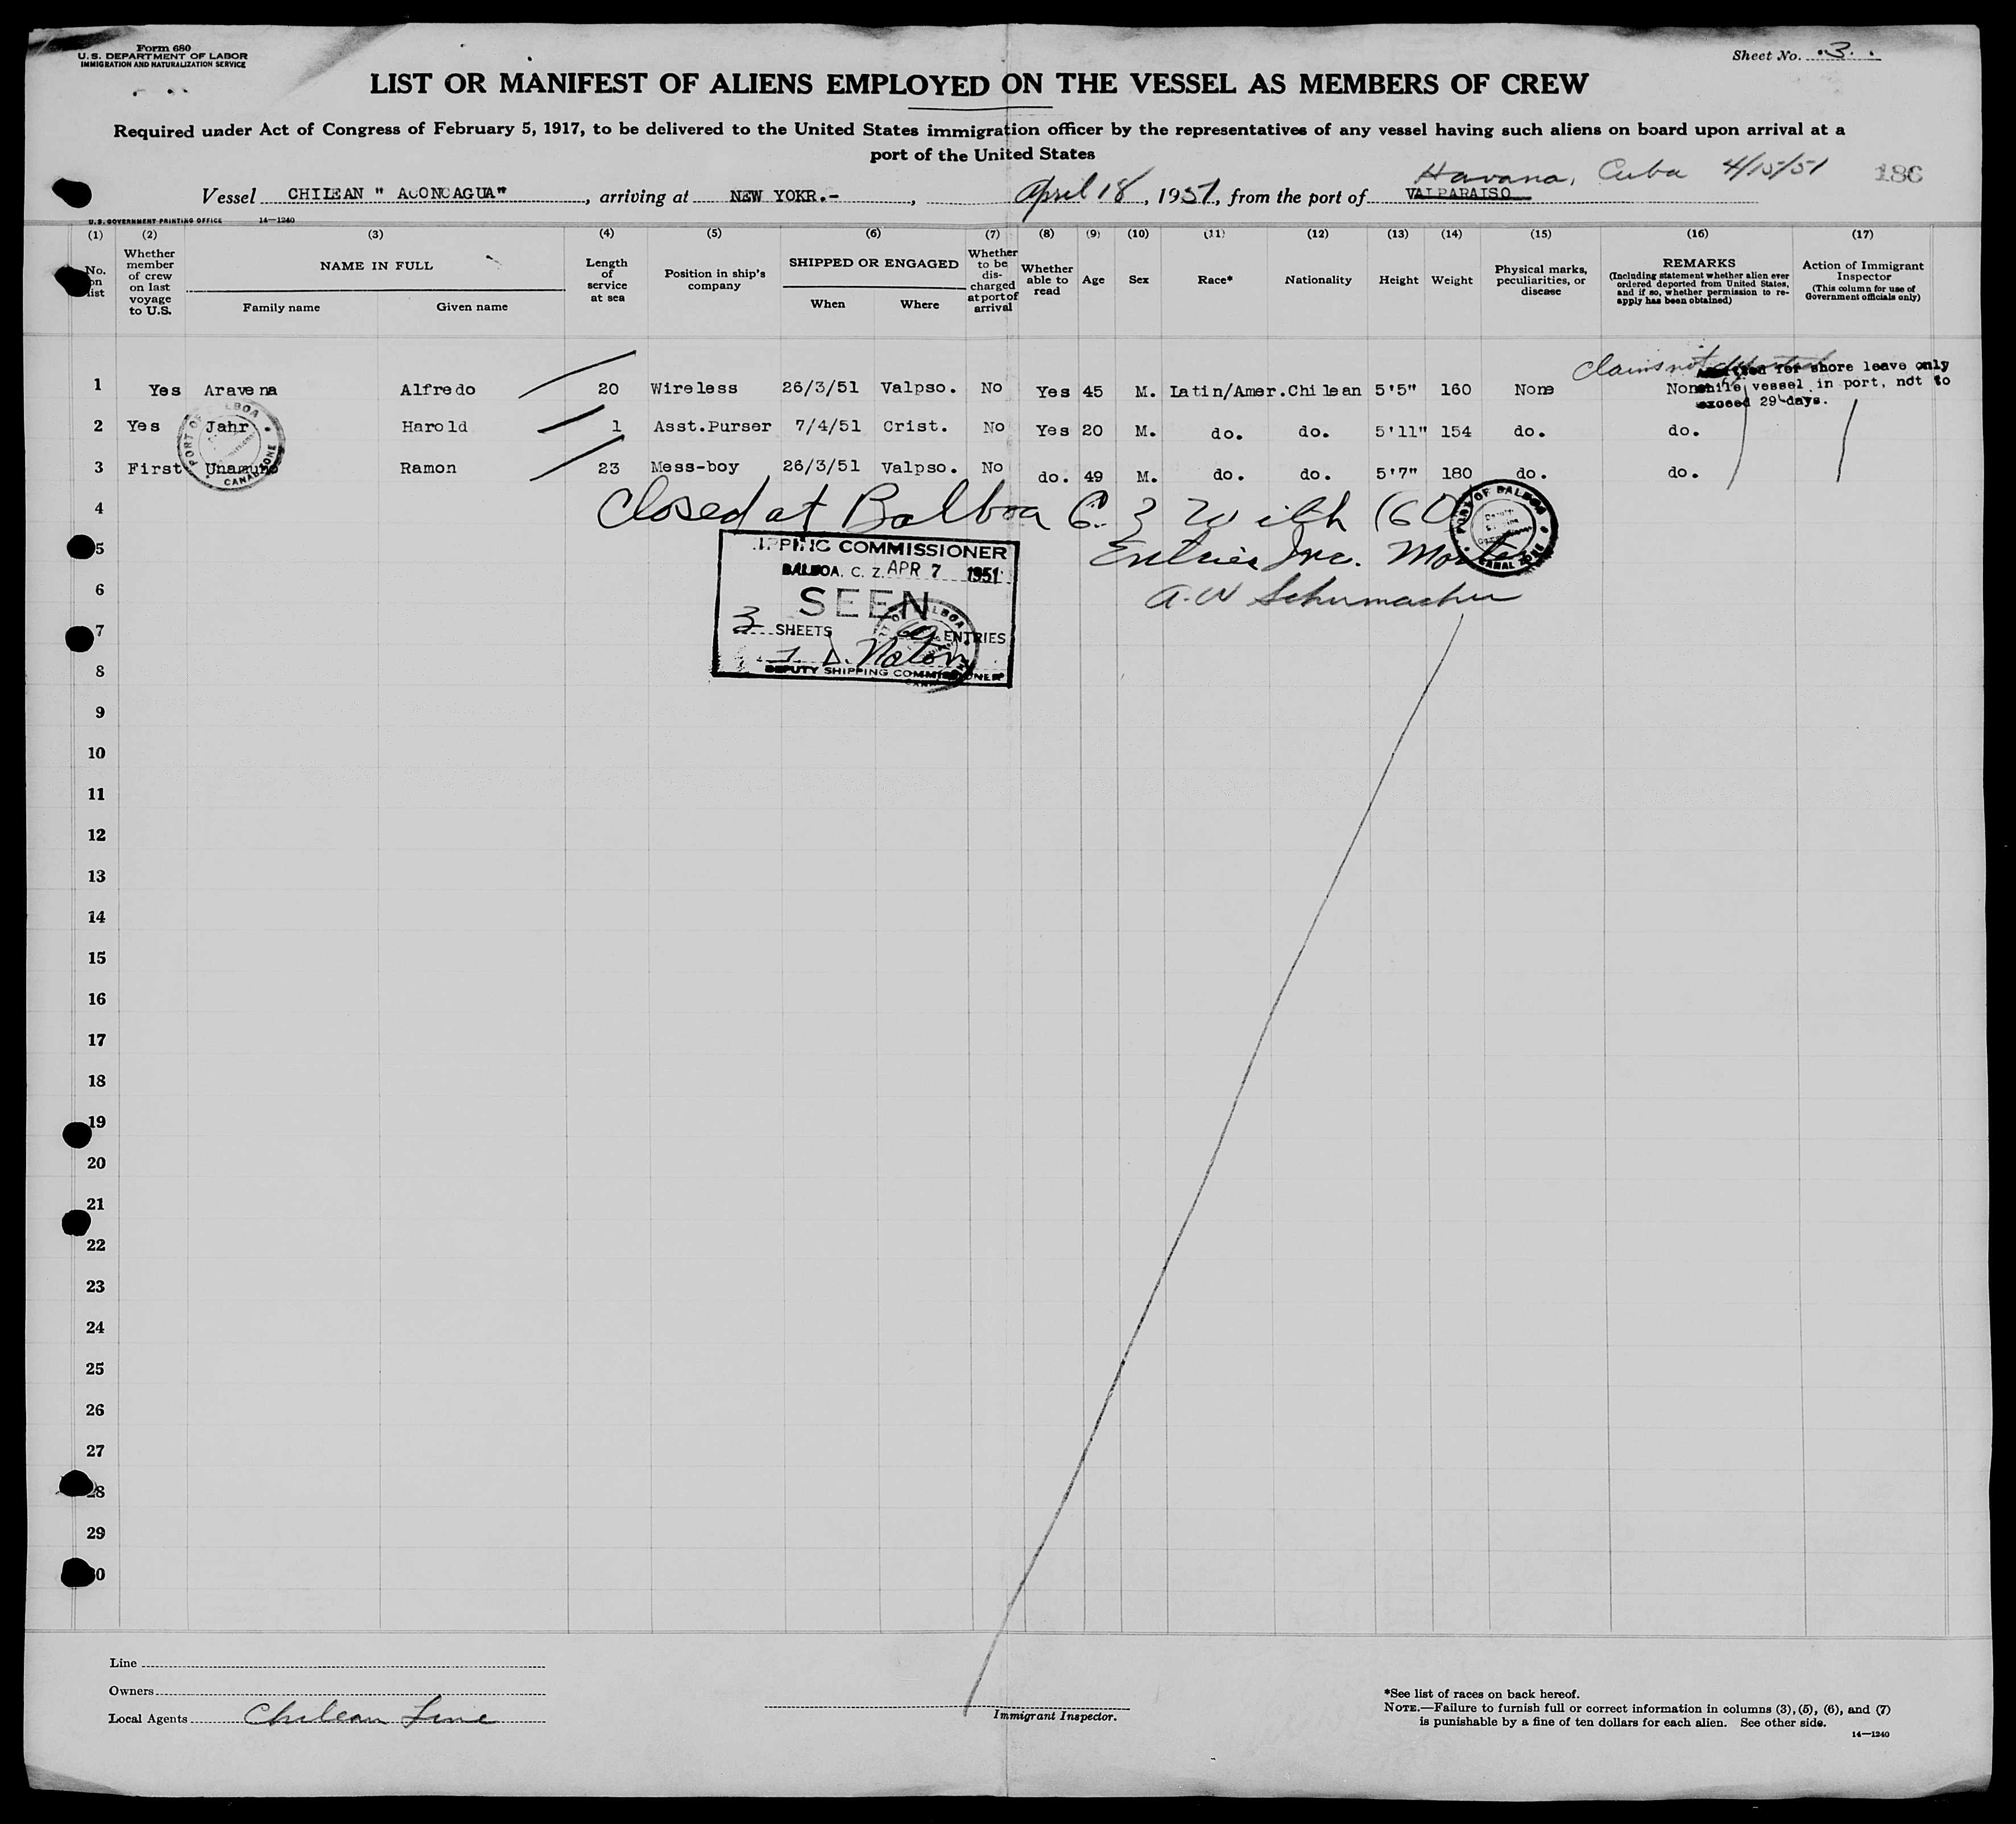 Form 680
U. S. DEPARTMENT OF LABOR
IMMIGRATION AND NATURALIZATION SERVICE
Sheet No. 3.
LIST OR MANIFEST OF ALIENS EMPLOYED ON THE VESSEL AS MEMBERS OF CREW
Required under Act of Congress of February 5, 1917, to be delivered to the United States immigration officer by the representatives of any vessel having such aliens on board upon arrival at a
port of the United States
Havana, Cuba 4/15/51 186
Vessel CHILEAN " ACONCAGUA" , arriving at NEW YOKR.- , April 18 , 1951, from the port of VALPARAISO
U. S. GOVERNMENT PRINTING OFFICE 14—1240
(1) (2) (3) (4) (5) (6) (7) (8) (9) (10) (11) (12) (13) (14) (15) (16) (17)
No. on list
Whether member of crew on last voyage to U.S.
NAME IN FULL
Family name
Given name
Length of service at sea
Position in ship's company
SHIPPED OR ENGAGED
When
Where
Whether to be discharged at port of arrival
Whether able to read
Age
Sex
Race*
Nationality
Height
Weight
Physical marks, peculiarities, or disease
REMARKS
(Including statement whether alien ever ordered deported from United States, and if so, whether permission to reapply has been obtained)
Action of Immigrant Inspector
(This column for use of Government officials only)
Claims not deported
for shore leave only
while vessel in port, not to
exceed 29 days.
1 Yes Aravena Alfredo 20 Wireless 26/3/51 Valpso. No Yes 45 M. Latin/Amer. Chilean 5'5" 160 None None
2 Yes Jahr Harold 1 Asst.Purser 7/4/51 Crist. No Yes 20 M. do. do. 5'11" 154 do. do.
3 First Unamuno Ramon 23 Mess-boy 26/3/51 Valpso. No do. 49 M. do. do. 5'7" 180 do. do.
PORT OF BALBOA
CANAL ZONE
4
Closed at Balboa C. Z With (60)
Entries Inc. Master
A. W Schumacher
PORT OF BALBOA
CANAL ZONE
IPPING COMMISSIONER
BALBOA, C. Z. APR 7 1951
SEEN
3 SHEETS 60 ENTRIES
DEPUTY SHIPPING COMMISSIONER
5
6
7
8
9
10
11
12
13
14
15
16
17
18
19
20
21
22
23
24
25
26
27
28
29
30
Line
Owners
Local Agents Chilean Line
Immigrant Inspector.
*See list of races on back hereof.
NOTE.—Failure to furnish full or correct information in columns (3), (5), (6), and (7)
is punishable by a fine of ten dollars for each alien. See other side.
14—1240